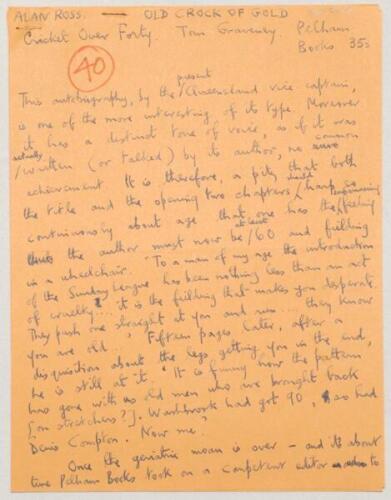 ALAN ROSS. — OLD CROCK OF GOLD
Cricket Over Forty. Tom Graveney Pelham
Books 35s
40
present
This autobiography, by the / Queensland vice captain,
is one of the more interesting of its type. Moreover
it has a distinct tone of voice, as if it was
actually common
/ written (or talked) by its author, no
achievement. It is, therefore, a pity that both
the title and the opening two chapters should harp so
continuously about age that one has the feeling
the author must now be / 60 and fielding
at least
in a wheelchair. "To a man of my age the introduction
of the Sunday League has been nothing less than an act
of cruelty... it is the fielding that makes you desperate.
They push one straight at you and run... they know
you are old..." Fifteen pages later, after a
disquisition about the legs getting you in the end,
he is still at it. "It is funny how the pattern
has gone with us old men who are brought back
[on stretchers?]. Washbrook had got 90, so had
Denis Compton. Now me."
Once the geriatric moan is over – and it's about
time Pelham Books took on a competent editor to